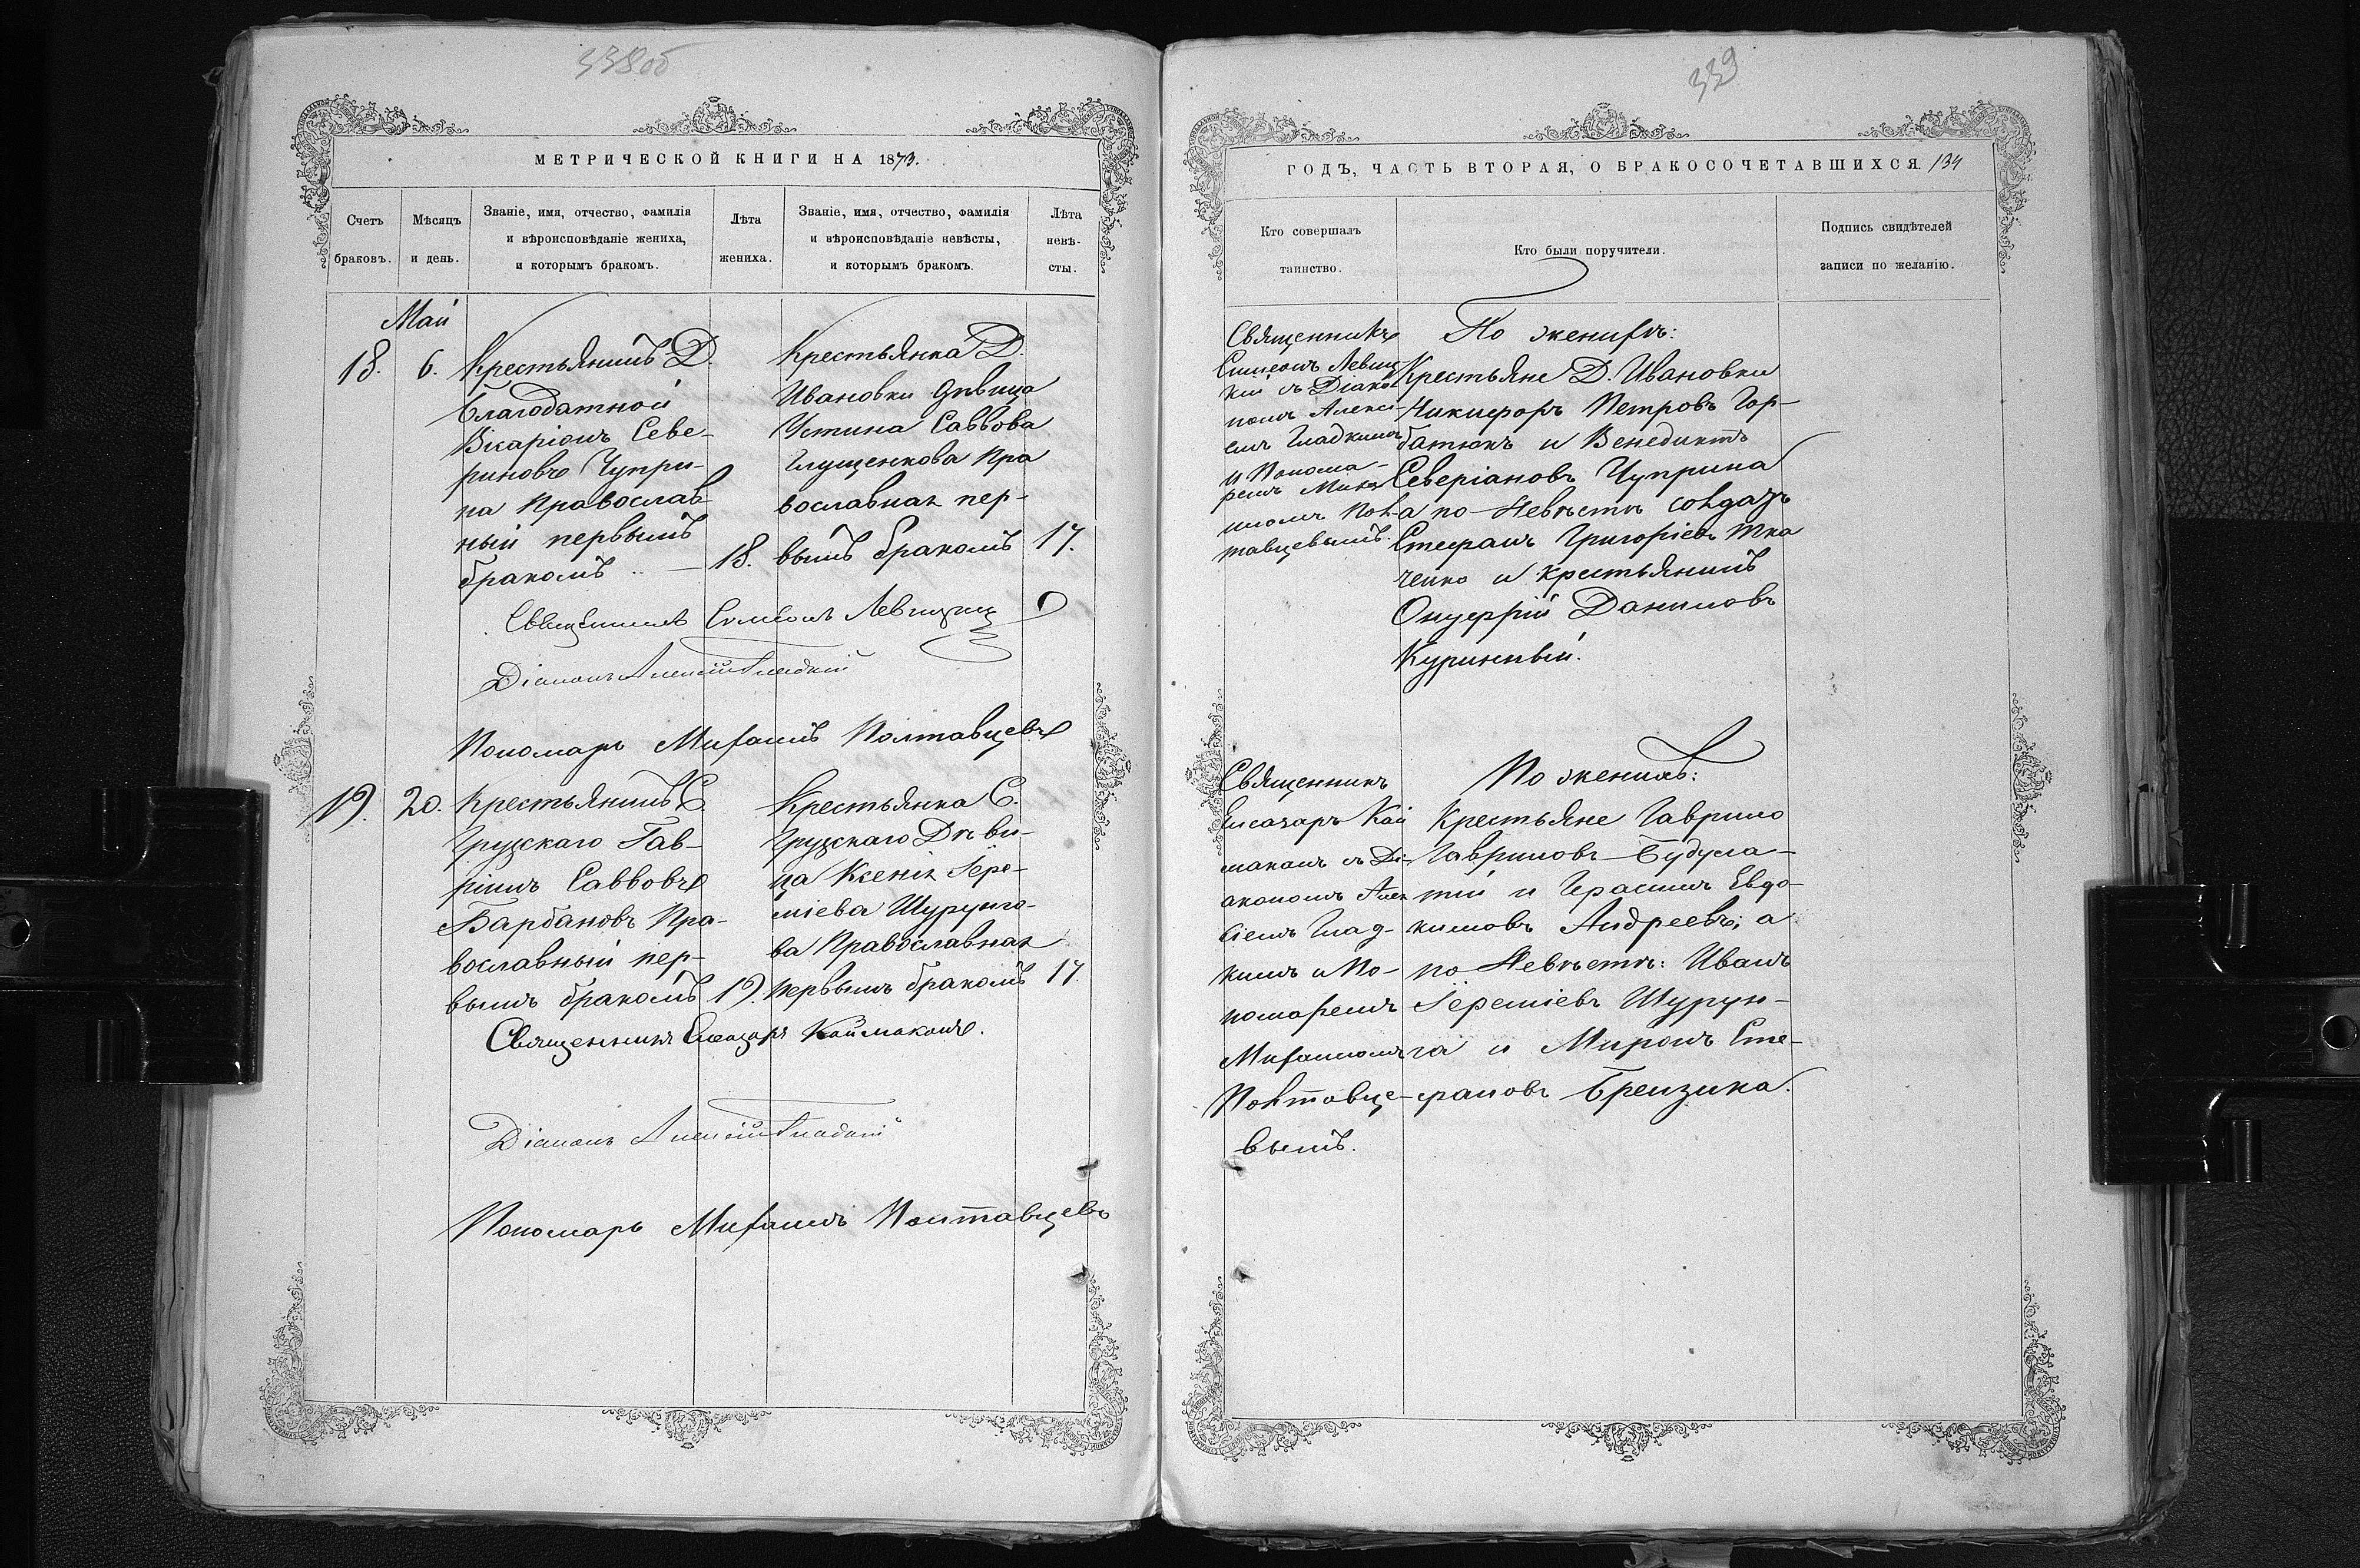 338об
МЕТРИЧЕСКОЙ КНИГИ НА 1873.
Счетъ браковъ.
Мѣсяцъ и день.
Званіе, имя, отчество, фамилія
и вѣроисповѣданіе жениха,
и которымъ бракомъ.
Лѣта жениха.
Званіе, имя, отчество, фамилія
и вѣроисповѣданіе невѣсты,
и которымъ бракомъ.
Лѣта невѣ-
сты.
Май
18.
6.
Крестьянинъ Д.
Благодатной
Вікаріонъ Севе-
риновъ Чупри-
на Православ-
ный первымъ
бракомъ
18.
Крестьянка Д.
Ивановки дѣвица
Устина Саввова
Глущенкова Пра
вославная пер-
вымъ бракомъ
17.
Священникъ Симеонъ Левицкій
Діаконъ Алексій Гладкій
Пономарь Михаилъ Полтавцевъ
19.
20.
Крестьянинъ С.
Грузскаго Гав-
ріилъ Саввовъ
Барбановъ Пра-
вославный пер-
вымъ бракомъ
19.
Крестьянка С.
Грузскаго Дѣви-
ца Ксенія Іере-
міева Шурунго-
ва Православная
первымъ бракомъ
17.
Священникъ Елеазаръ Каймаканъ.
Діаконъ Алексій Гладкій
Пономарь Михаилъ Полтавцевъ
339
ГОДЪ, ЧАСТЬ ВТОРАЯ, О БРАКОСОЧЕТАВШИХСЯ. 134
Кто совершалъ
таинство.
Кто были поручители.
Подпись свидѣтелей
записи по желанію.
Священникъ
Симеонъ Левиц
кій съ Діако
номъ Алексі-
емъ Гладкимъ
и Понома-
ремъ Миха
иломъ Пол-
тавцевымъ.
По женихѣ:
Крестьяне Д. Ивановки
Никифоръ Петровъ Гор-
батюкъ и Венедиктъ
Северіановъ Чуприна
а по Невѣстѣ солдатъ
Стефанъ Григоріевъ Тка
ченко и крестьянинъ
Онуфрій Даниловъ
Куринный.
Священникъ
Елеазаръ Кай
маканъ съ Ді-
акономъ Алек
сіемъ Глад-
кимъ и По-
номаремъ
Михаиломъ
Полтавце-
вымъ.
По женихѣ:
Крестьяне Гаврило
Гавриловъ
и Герасимъ Евдо-
кимовъ Андреевъ; а
по Невѣстѣ: Иванъ
Іереміевъ Шурун-
га и Миронъ Сте-
фановъ Брензика.